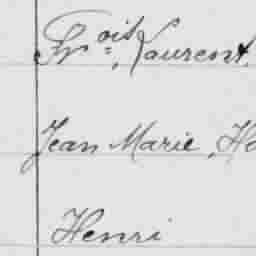 Frois, Laurent,
Jean Marie, He
Henri